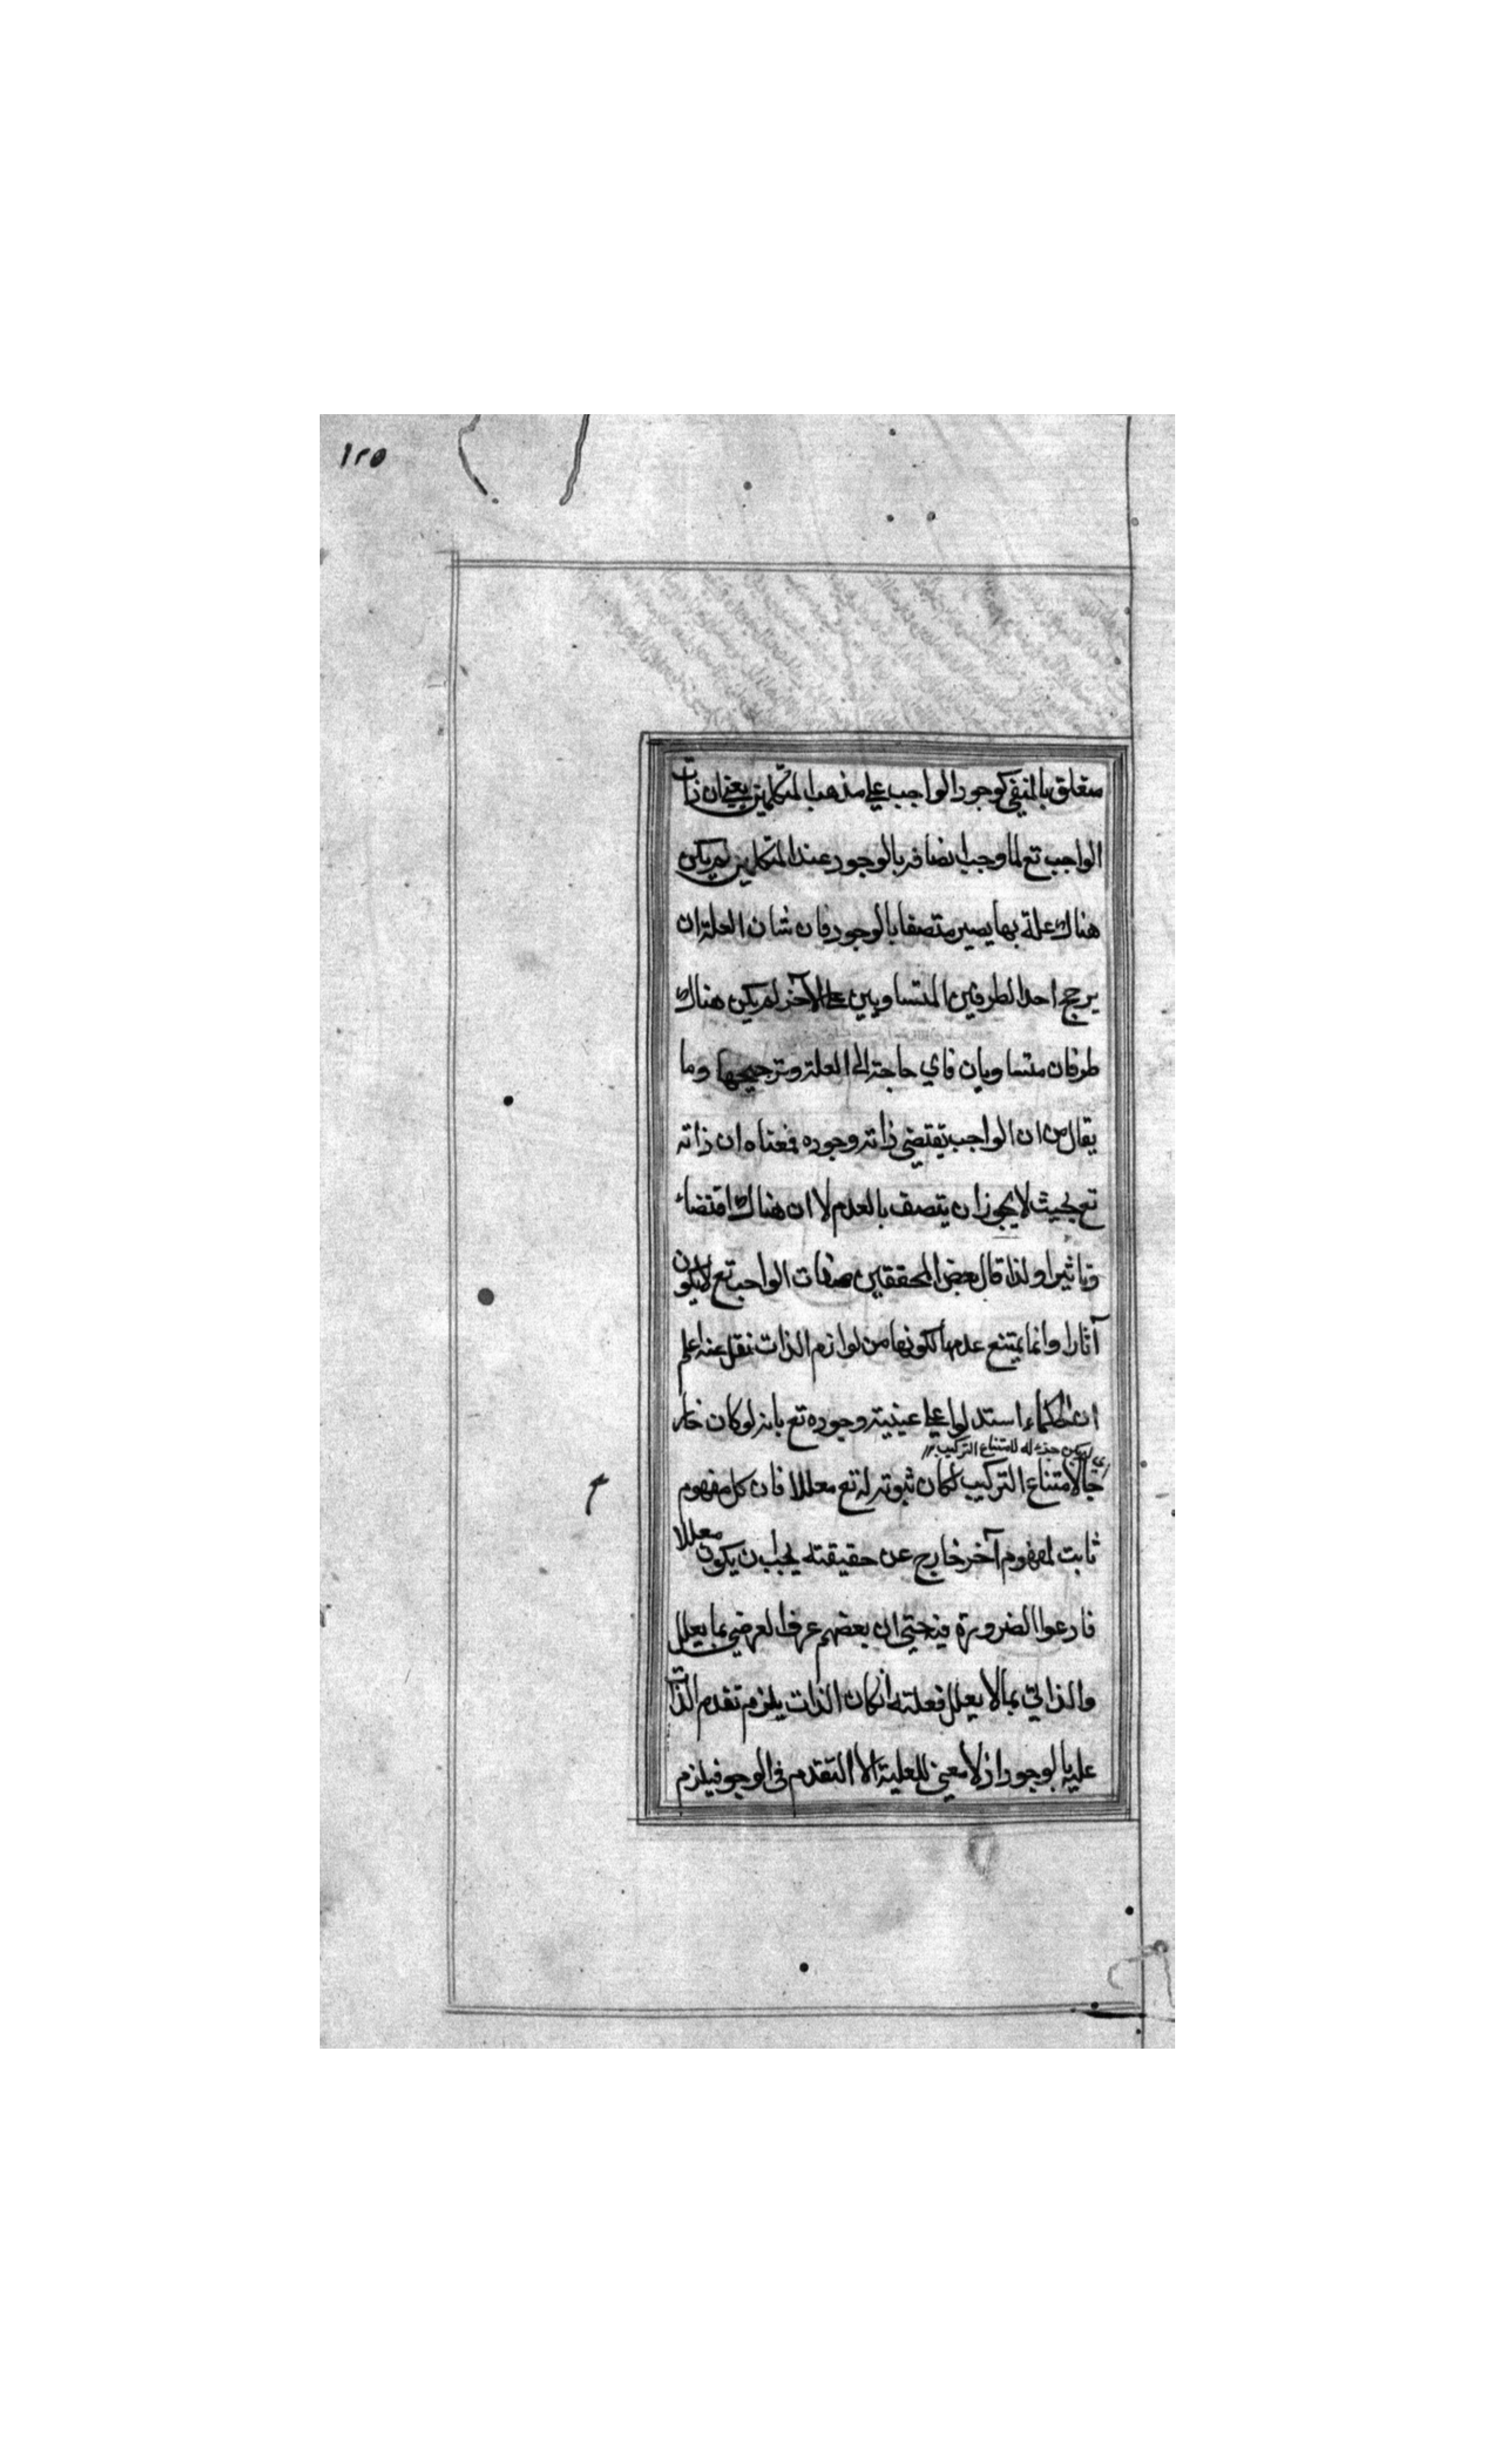 ١٢٥
متعلق بالمنفي كوجود الواجب على مذهب المتكلمين يعني ان ذات
الواجب تع لما وجب اتصافه بالوجود عند المتكلمين لم يكن
هناك علة بها يصير متصفا بالوجود فان شان العلة ان
يرجح احد الطرفين المتساويين على الآخر لم يكن هناك
طرفان متساويان فاي حاجة الى العلة وترجيحها وما
يقال من ان الواجب يقتضي ذاته وجوده فمعناه ان ذاته
تع بحيث لا يجوز ان يتصف بالعدم لا ان هناك اقتضاء
وتاثيرا ولذا قال بعض المحققين صفات الواجب تع لا يكون
آثارا وانما يمتنع عدمها لكونها من لوازم الذات نقل عنه اعلم
ان الحكماء استدلوا على عينية وجوده تع بانه لو كان خار
اي لم يكن جزء له لامتناع التركيب
جا لامتناع التركيب لكان ثبوته له تع معللا فان كل مفهوم
ثابت لمفهوم آخر خارج عن حقيقته يجب ان يكون معللا
فادعوا الضرورة فيه حتى ان بعضهم عرف العرضي بما يعلل
والذاتي بما لا يعلل فعلته ان كان الذات يلزم تقدم الذات
عليه بالوجود اذ لا معنى للعلية الا التقدم في الوجو فيلزم